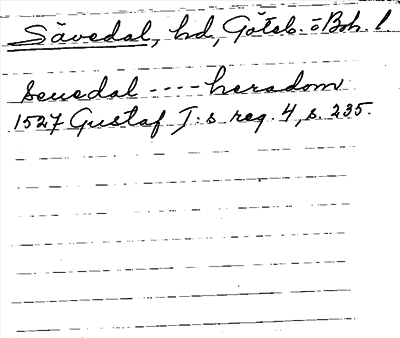 Sävedal, hd, Göteb. o Boh. l.
Seuedal ---- heradom
1527 Gustaf I:s reg. 4, s. 235.